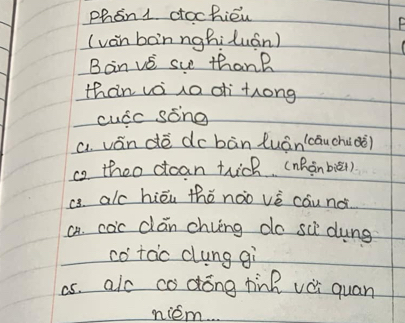 phần 1 đọc hiểu
(văn bản nghị luận)
Bàn về sự thanh
thản và ra đi trong
cuộc sống
c1. vấn đề dc bàn luận (câu chủ đề)
c2. theo đoạn trích... (nhận biết)
c3. a/c hiểu thế nào về câu nói
c4. các dẫn chứng dc sử dụng
có tác dụng gì
c5. a/c có đồng tình với quan
niệm...